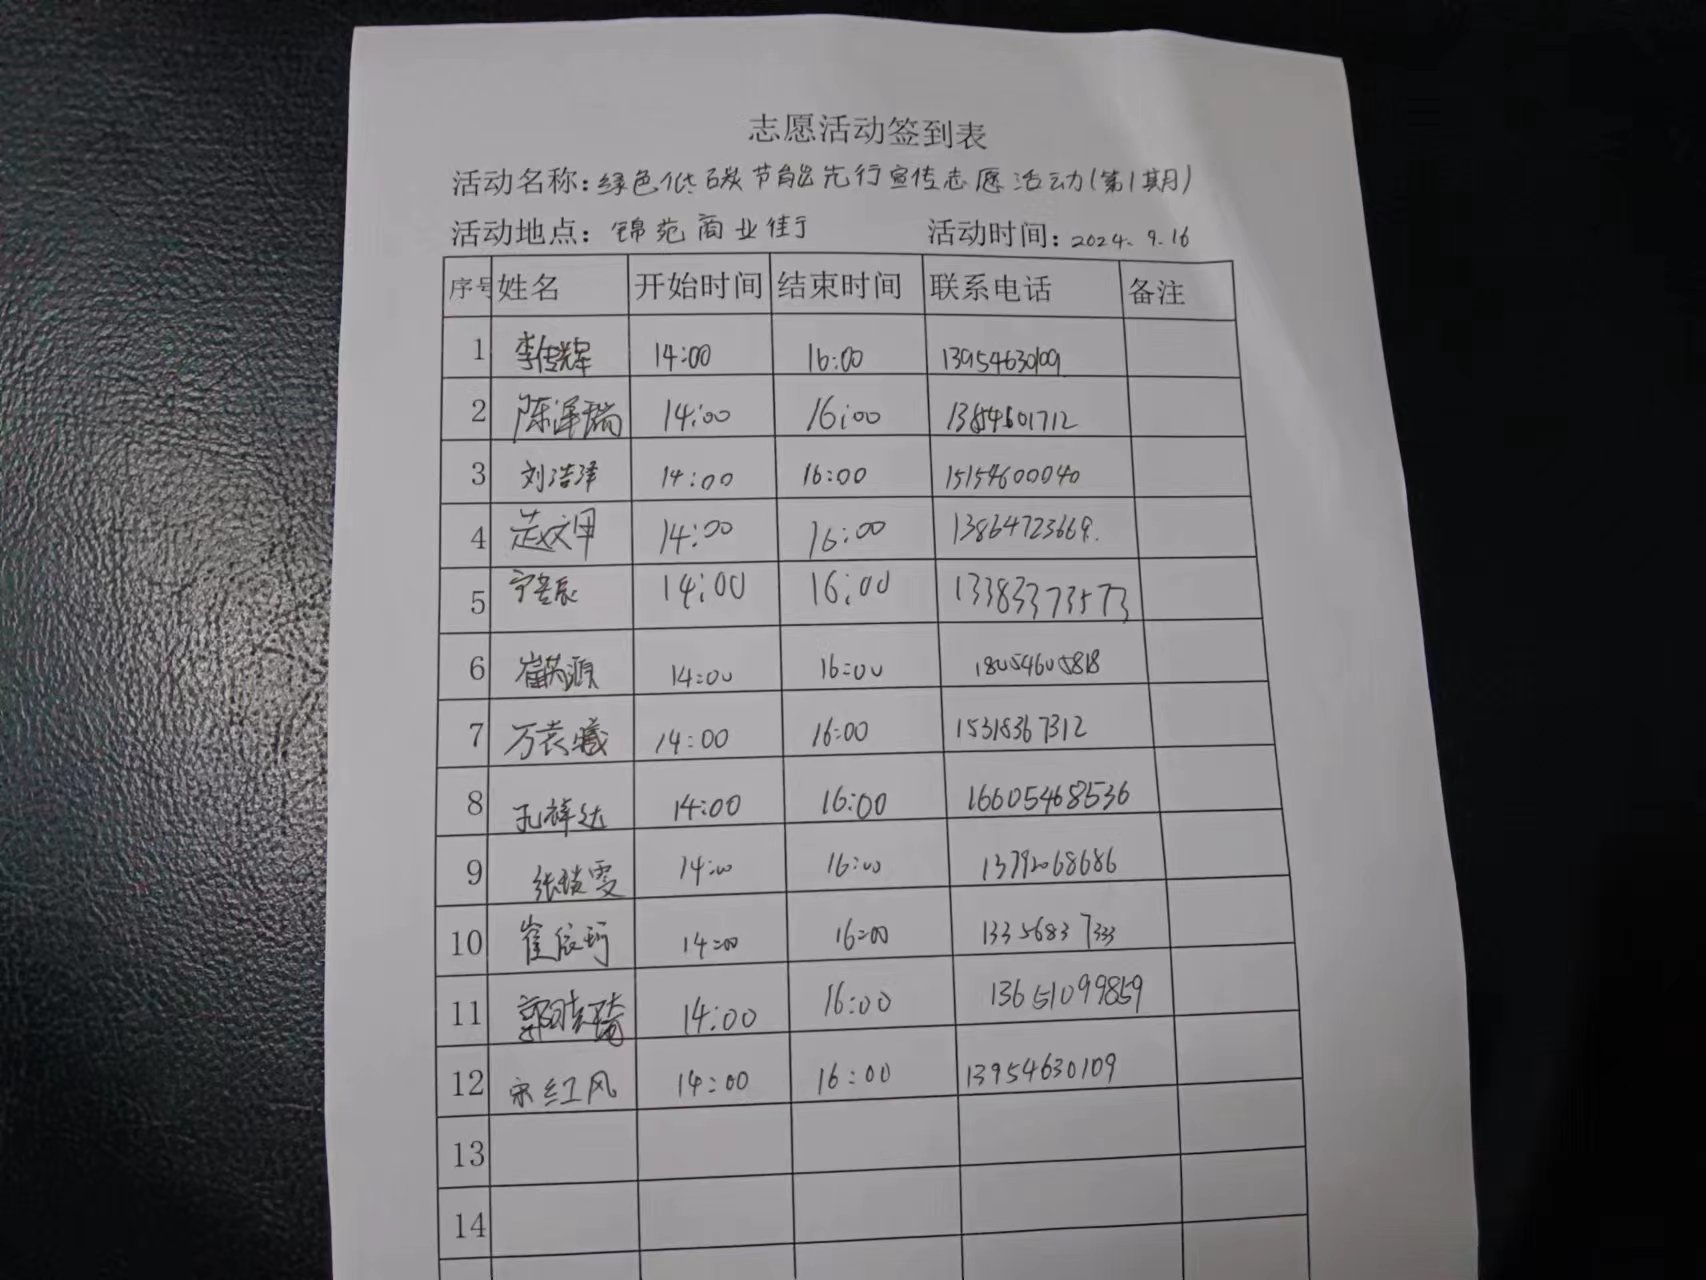 志愿活动签到表
活动名称:绿色低碳节能先行宣传志愿活动(第1期)
活动地点: 锦苑商业街 活动时间: 2024.9.16
序号 姓名 开始时间 结束时间 联系电话 备注
1 李传辉 14:00 16:00 13954630109
2 陈泽瑞 14:00 16:00 13854601712
3 刘浩泽 14:00 16:00 15154600040
4 赵文甲 14:00 16:00 13864723669.
5 14:00 16:00 13383373573
6 14:00 16:00 18054605818
7 14:00 16:00 15318367312
8 孔祥达 14:00 16:00 16605468536
9 14:00 16:00 13792068686
10 崔依珂 14:00 16:00 13356837333
11 14:00 16:00 13651099859
12 宋红风 14:00 16:00 13954630109
13
14